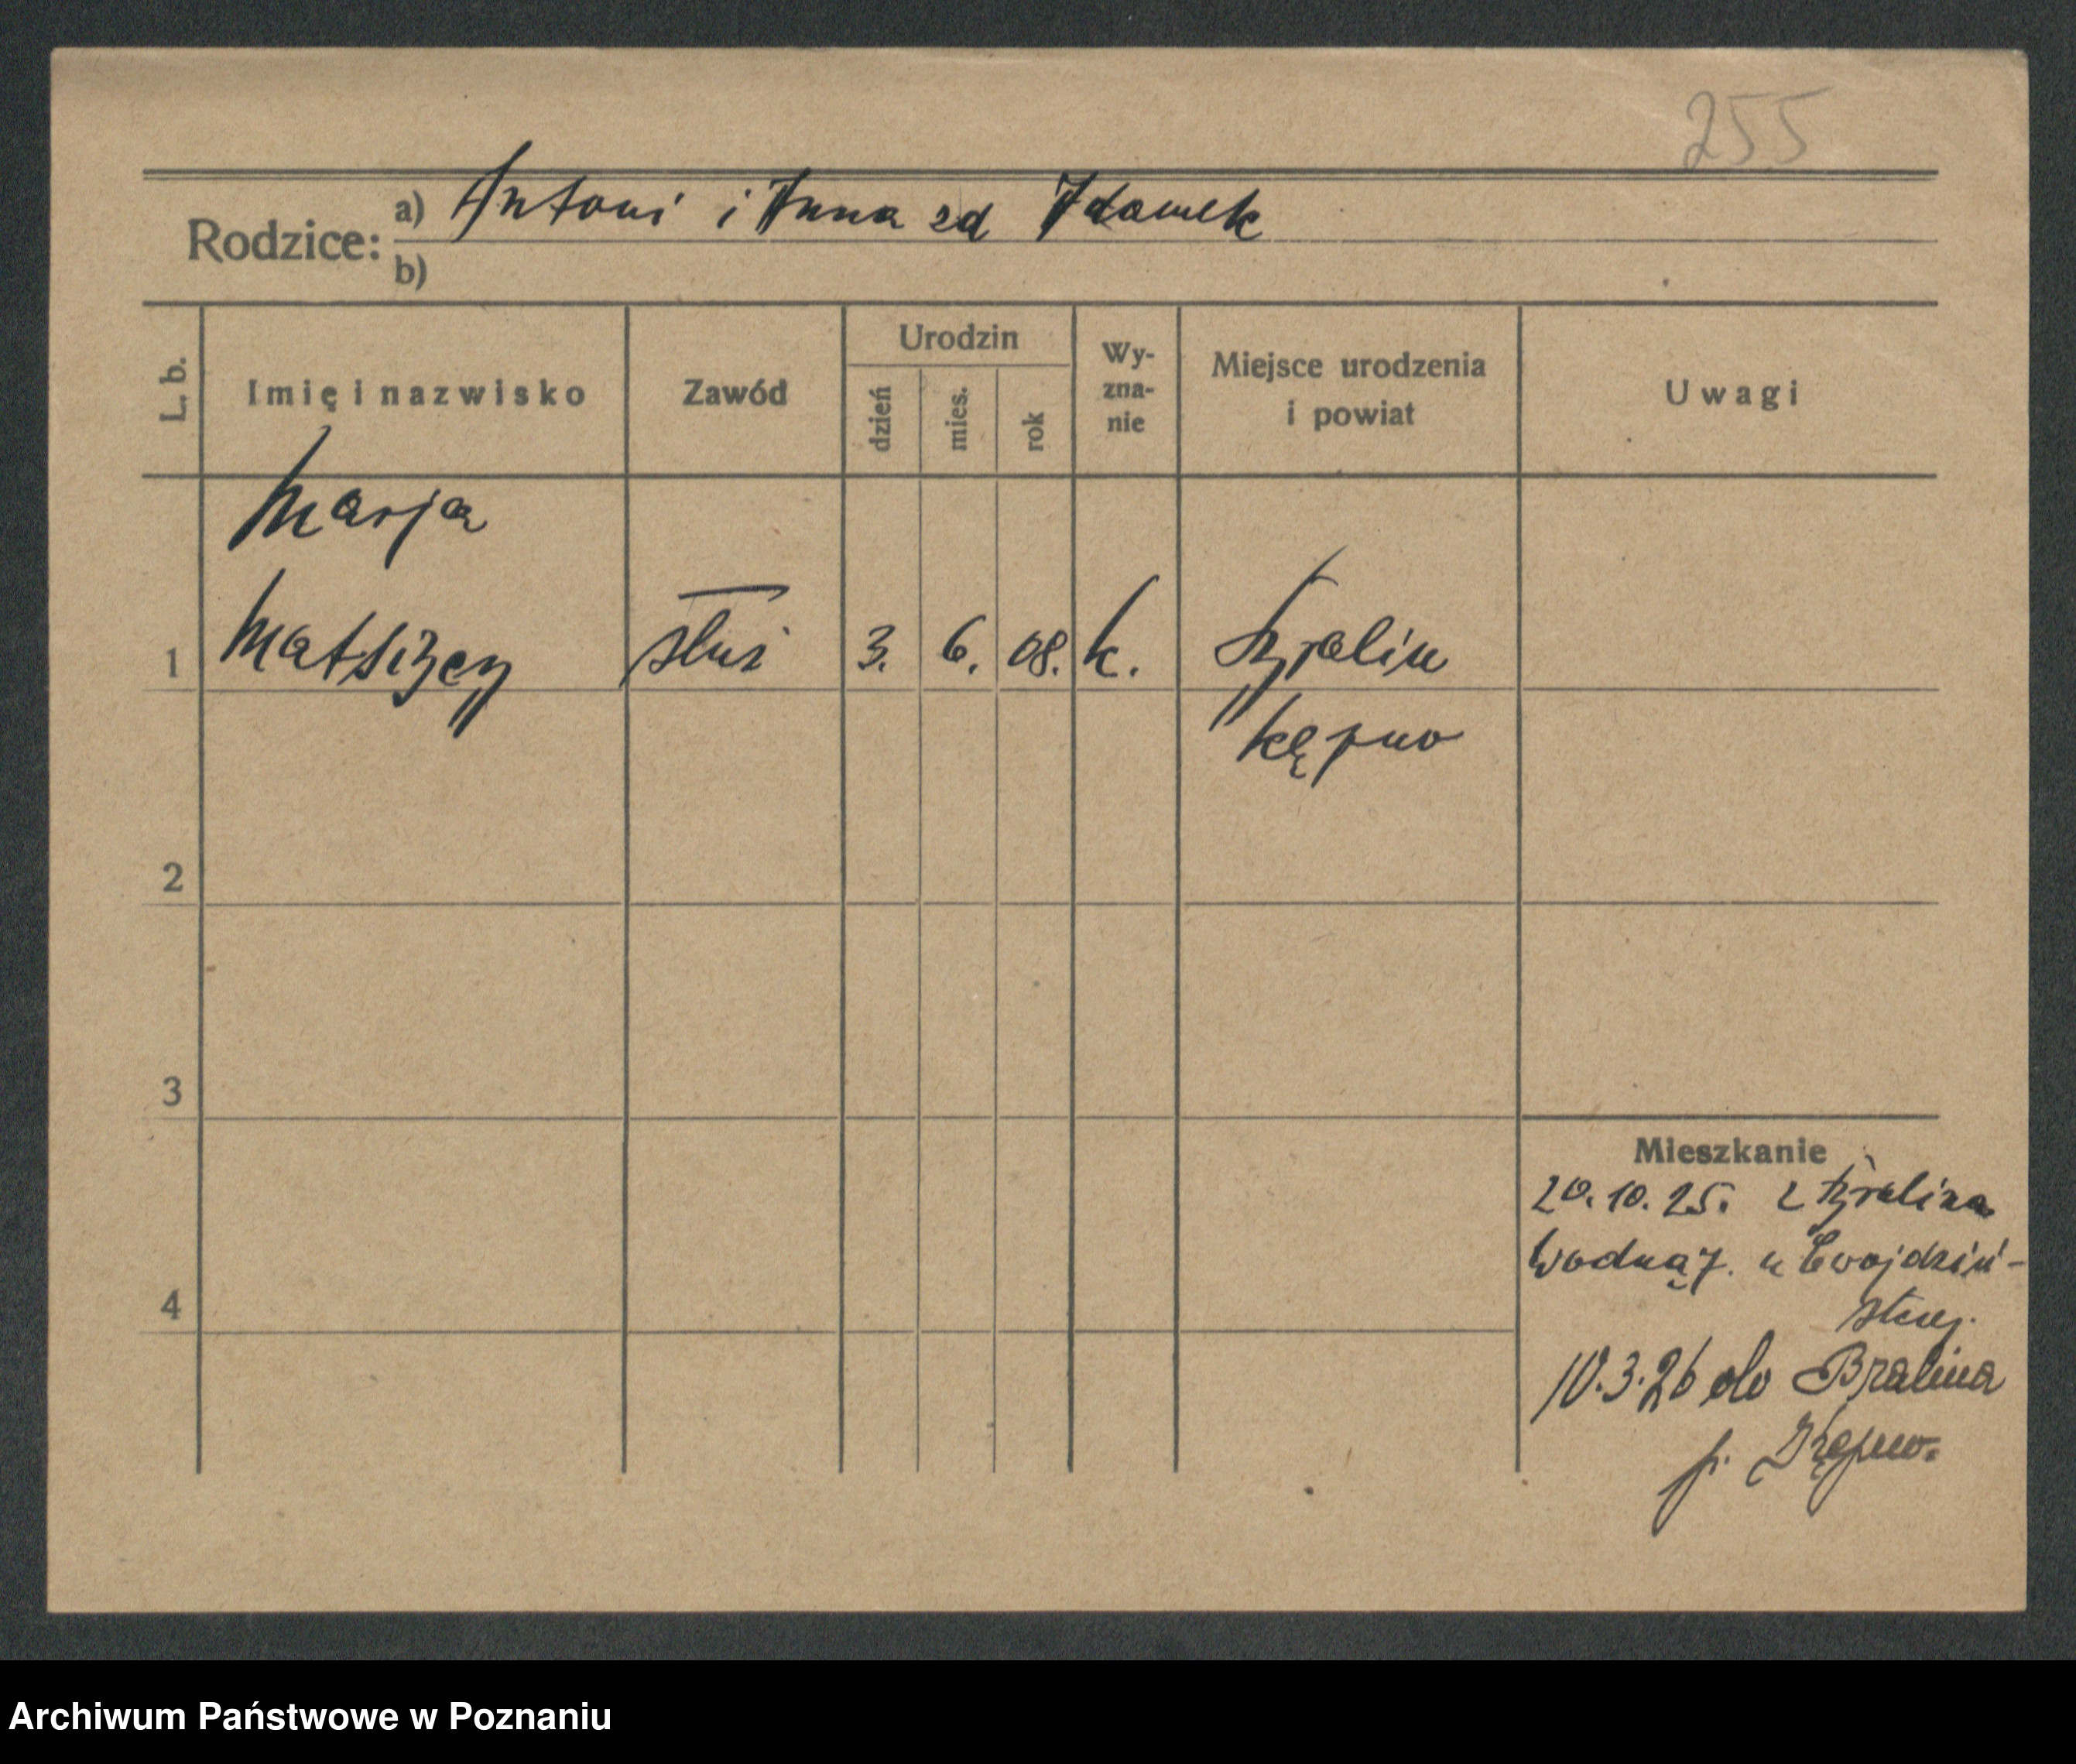 255
Rodzice: a) Antoni i Anna zd Adamek
b)
L. b. Imię i nazwisko Zawód Urodzin dzień mies. rok Wy-zna-nie Miejsce urodzenia i powiat Uwagi
Marja
1 służ 3. 6. 08. k. Bralin
Kępno
2
3
Mieszkanie
20.10.25. z Bralina
Wodna 7. u
4
10.3.26 do Bralina
p. Kępno.
Archiwum Państwowe w Poznaniu